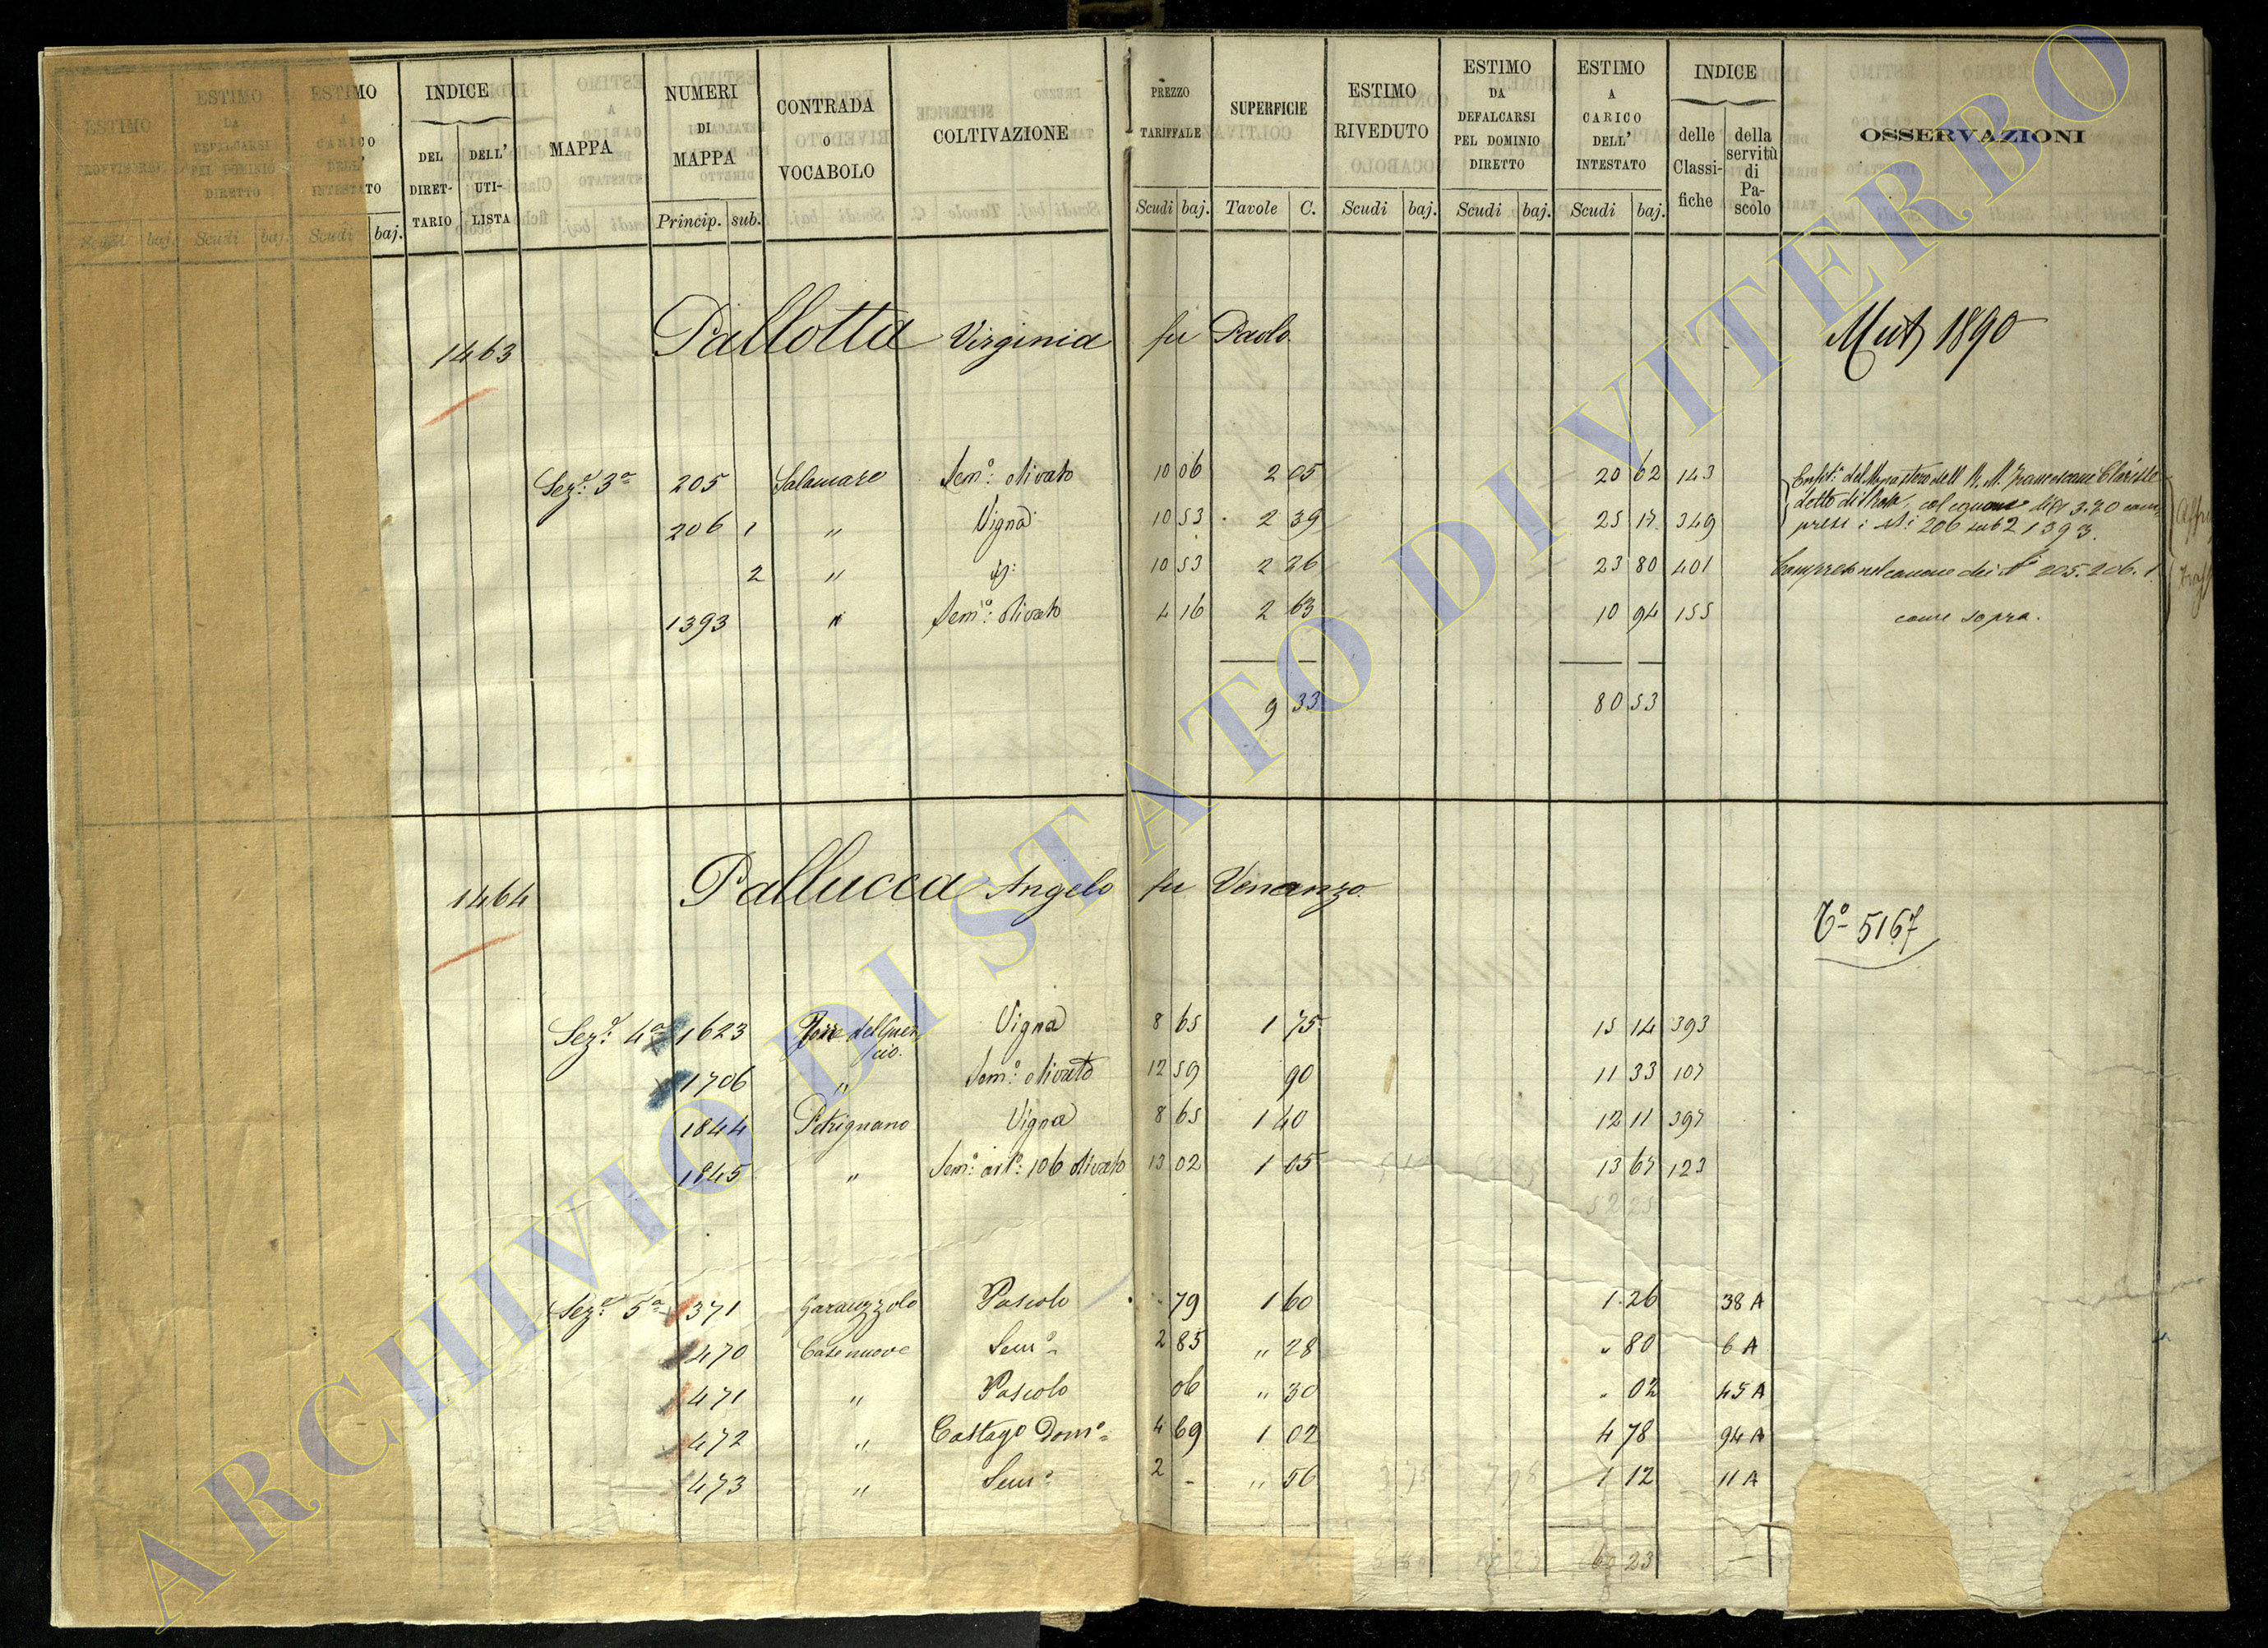 ESTIMO PROVVISORIO Scudi baj.
ESTIMO DA DEFALCARSI PEL DOMINIO DIRETTO Scudi baj.
ESTIMO A CARICO DELL' INTESTATO Scudi baj.
INDICE DEL DIRETTARIO DELL' UTILISTA
MAPPA
NUMERI DI MAPPA Princip. sub.
CONTRADA O VOCABOLO
COLTIVAZIONE
PREZZO TARIFFALE Scudi baj.
SUPERFICIE Tavole C.
ESTIMO RIVEDUTO Scudi baj.
ESTIMO DA DEFALCARSI PEL DOMINIO DIRETTO Scudi baj.
ESTIMO A CARICO DELL' INTESTATO Scudi baj.
INDICE delle Classifiche della servitù di Pascolo
OSSERVAZIONI
1463 Pallotta Virginia fu Paolo Mut 1890
Sez.e 3a 205 Salamaro Sem.o olivato 10 06 2 05 20 62 143
detto di col canone di 3.70
206 1 " Vigna 10 53 2 39 25 17 349
206 sub 2 1393.
2 " id: 10 53 2 26 23 80 401 Compreso nel canone dei Ni 205. 206. 1
1393 " Sem.o olivato 4 16 2 63 10 94 155 come sopra.
9 33 80 53
1464 Pallucca Angelo fu Venanzo
To 5167
Sez.e 4a 1623 Torre del Guercio. Vigna 8 65 1 75 15 14 393
1706 " Sem.o olivato 12 59 90 11 33 107
1844 Petrignano Vigna 8 65 1 40 12 11 397
1845 " Sem.o art.o 106 olivato 13 02 1 05 13 67 123
52 25
Sez.e 5a 371 Pascolo - 79 1 60 1 26 38 A
470 Casenuove Sem.o 2 85 " 28 " 80 6 A
471 " Pascolo 06 " 30 " 02 45 A
472 " Castag.o Dom.o 4 69 1 02 4 78 94 A
473 " Sem.o 2 - " 56 1 12 11 A
60 23
ARCHIVIO DI STATO DI VITERBO